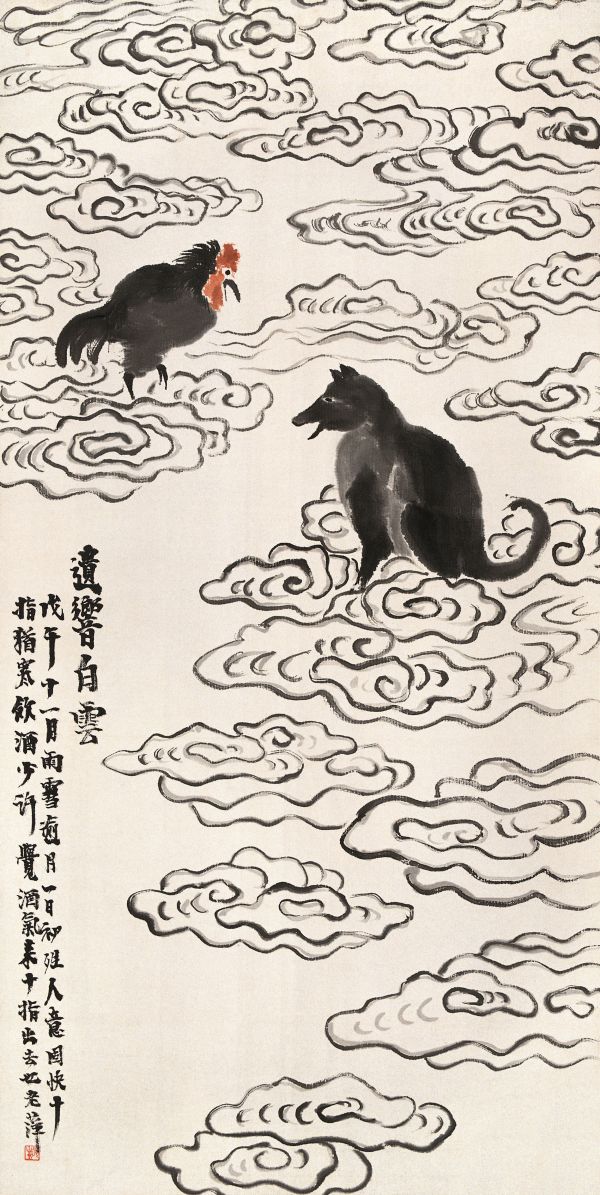 遺響白雲
戊午十一月雨雪逾月一日初殅人意固快十
指猶寒飲酒少許覺酒氣來十指出去也老萍